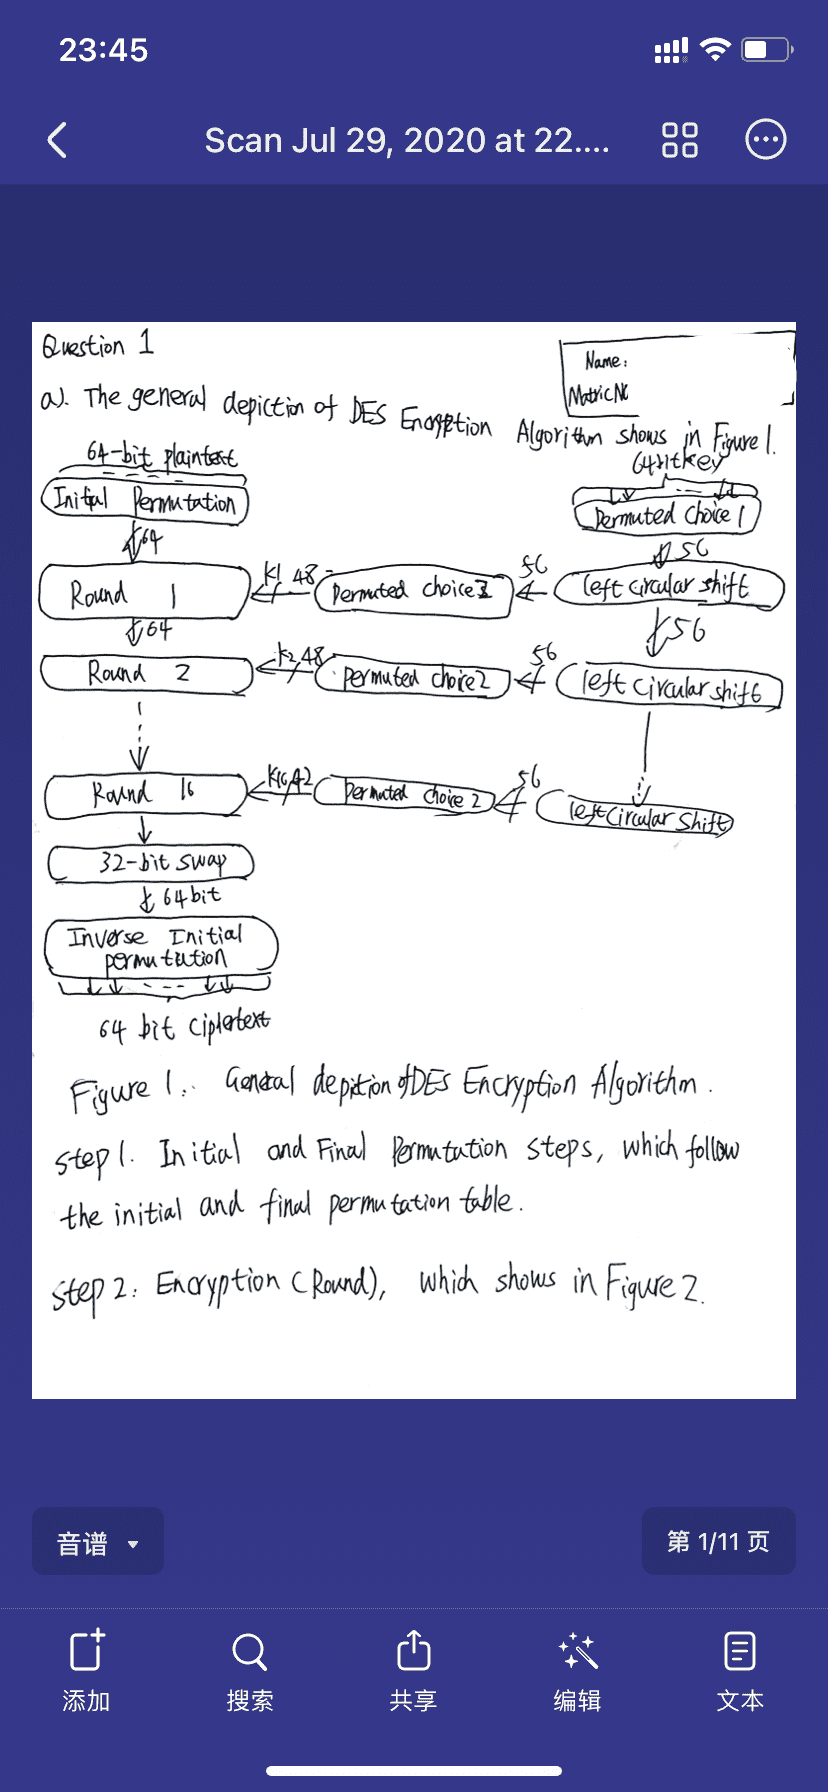 23:45
Scan Jul 29, 2020 at 22....
Question 1
Name:
Matric No
a). The general depiction of DES Encryption Algorithm shows in Figure 1.
64-bit plaintext
64bitkey
Initial Permutation
Permuted Choice 1
64
56
Round 1
K1 48
Permuted choice 2
56
left circular shift
64
56
Round 2
K2 48
permuted choice 2
56
left circular shift
Round 16
K16 42
permuted choice 2
56
left Circular Shift
32-bit swap
64 bit
Inverse Initial
permutution
64 bit ciplertext
Figure 1.. General depiction of DES Encryption Algorithm.
Step 1. Initial and Final Permutation steps, which follow
the initial and final permutation table.
Step 2: Encryption (Round), which shows in Figure 2.
音谱
第 1/11 页
添加
搜索
共享
编辑
文本